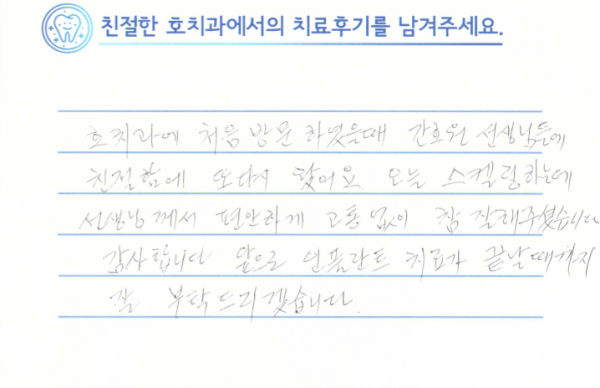 친절한 호치과에서의 치료후기를 남겨주세요.
호치과에 처음 방문 하였을때 간호원 선생님들에
친절함에 또다시 왔어요 오늘 스켈링하는데
선생님께서 편안하게 고통없이 참 잘해주셨습니다
감사합니다 앞으로 임플란트 치료가 끝날때까지
잘 부탁드리겠습니다.